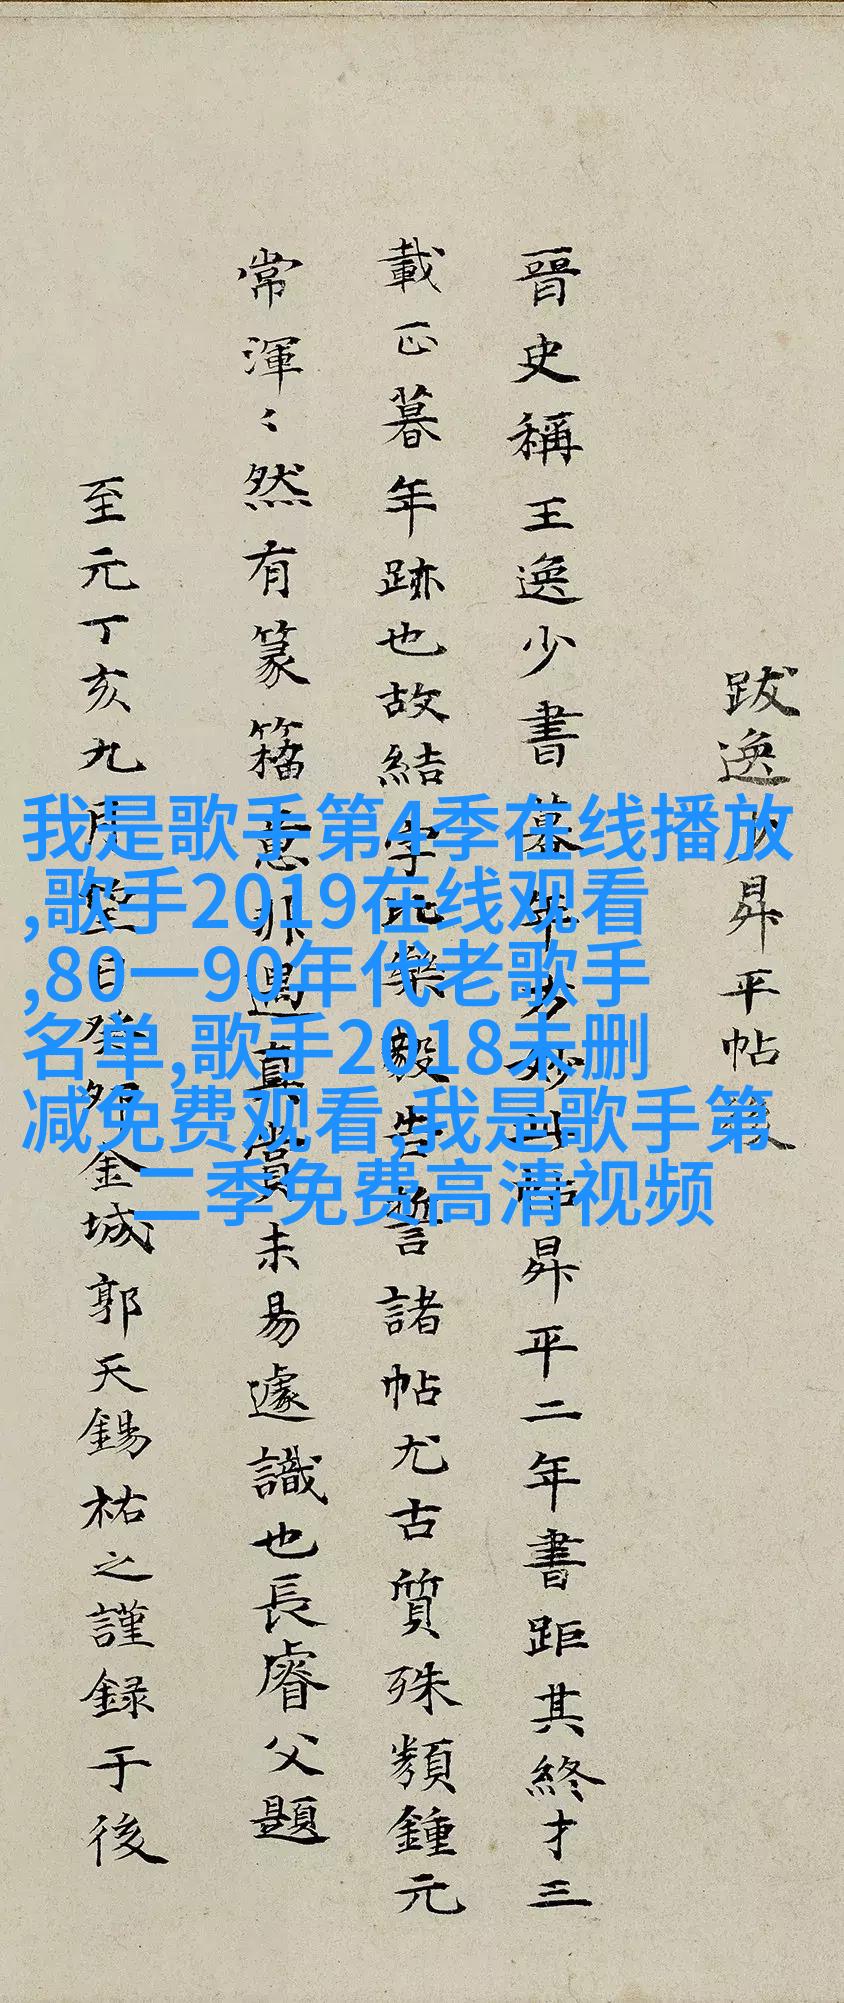 跋逸少昇平帖後
晉史稱王逸少書暮年方妙此帖昇平二年書距其終才三
載正暮年跡也故結字比樂毅告誓諸帖尤古質殊類鍾元
常渾〻然有篆籀意非遇真賞未易遽識也長睿父題
至元丁亥九月望日癸卯金城郭天錫祐之謹録于後
我是歌手第4季在线播放
,歌手2019在线观看
,80一90年代老歌手
名单,歌手2018未删
减免费观看,我是歌手第
二季免费高清视频